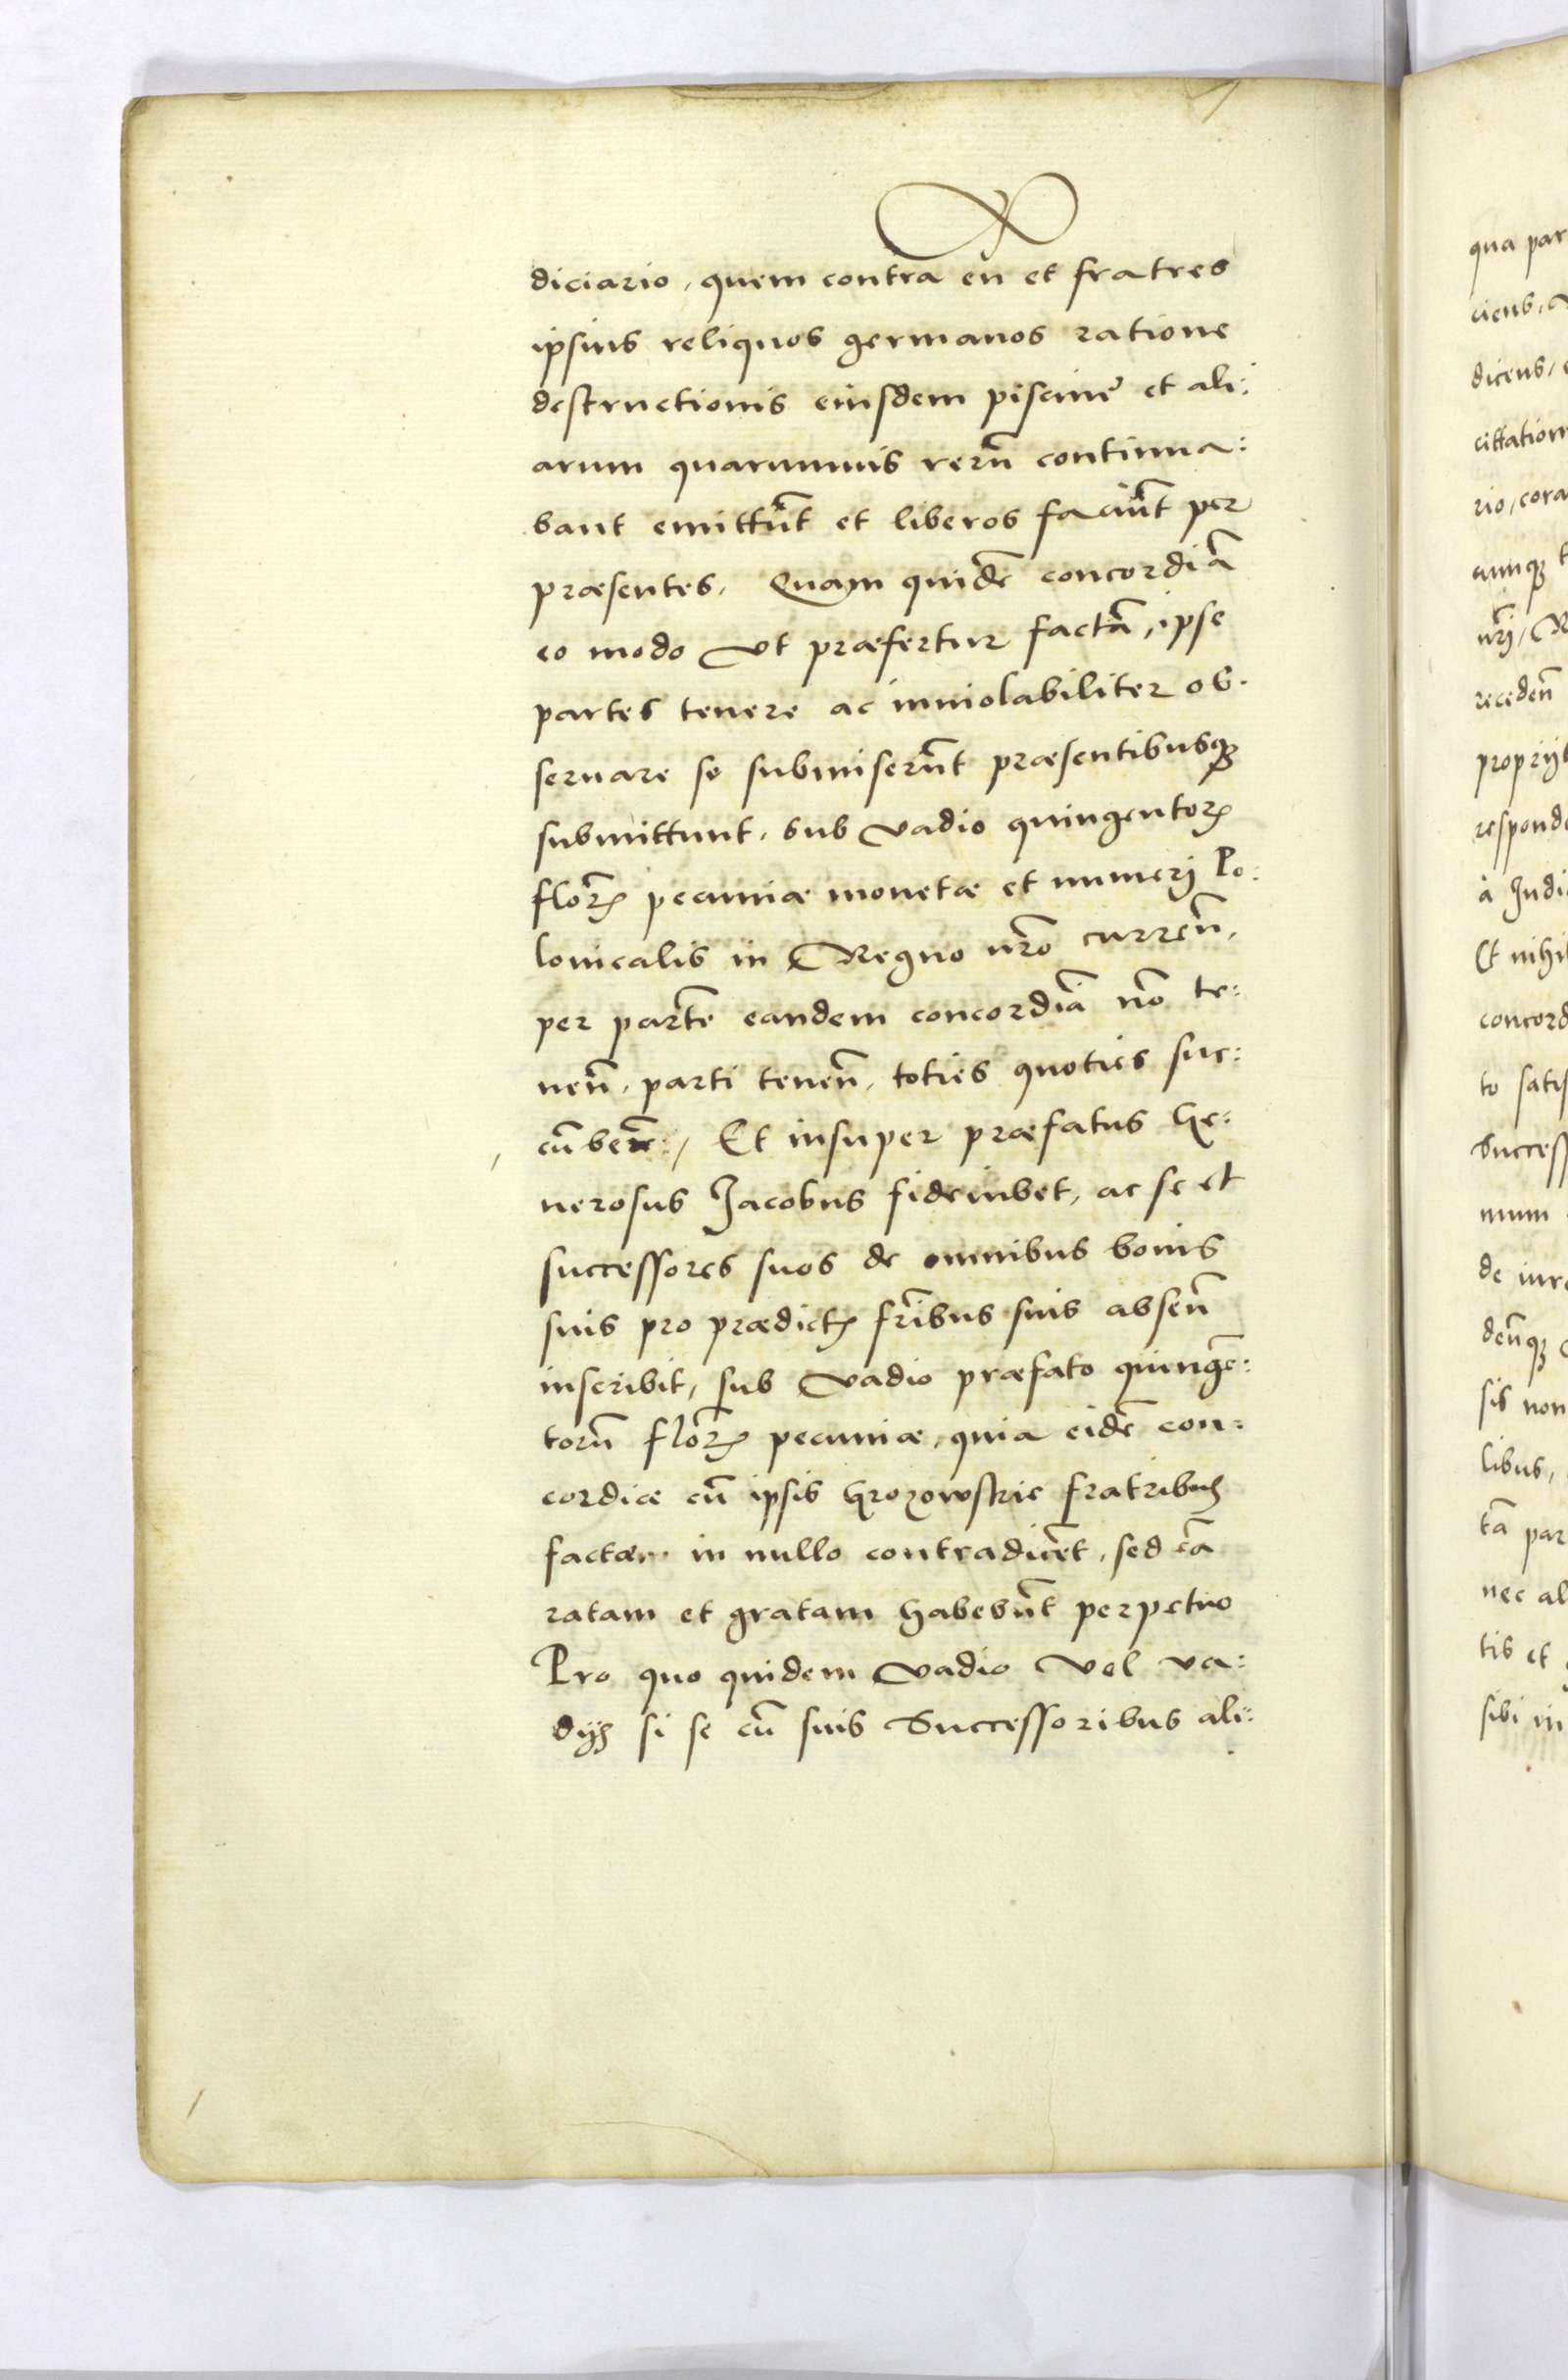 diciario, quem contra eū et fratres
ipsius reliquos germanos ratione
destructionis eiusdem piscinę et ali:
arum quarumuis rerū continua:
bant emittūt et liberos faciūt per
præsentes. Quam quidē concordiā
eo modo vt præfertur factā, ipse
partes tenere ac inuiolabiliter ob-
seruare se submiserūt præsentibusqꝫ
submittunt. sub vadio quingentorꝫ
florꝫ pecuniæ monetæ et numerj Po:
lonicalis in Regno nr̄o currēn.
per partē eandem concordiā nō te:
neñ. parti teneñ. toties quoties suc:
cūbeñ:, Et insuper præfatus Ge:
nerosus Jacobus fideiubet, ac se et
successores suos de omnibus bonis
suis pro prædictꝫ fr̄ibus suis abseñ
inscribit, sub vadio præfato quingē:
torū florꝫ pecuniæ, quia eidē con:
cordiæ cū ipsis Grozowskie fratribuꝫ
factæ in nullo contradicēt, sed eā
ratam et gratam habebūt perpetuo
Pro quo quidem vadio vel va:
dijs si se cū suis Successoribus ali:
qua par
ciens,
dicens,
cittation
rio, cora
cumqꝫ t
nr̄j, R
recedeñ
proprijs
responde
à Judi
Et nihi
concord
to satis
Success
mum
de iure
deñqꝫ
sis non
libus,
tā par
nec al
tis et
sibi in